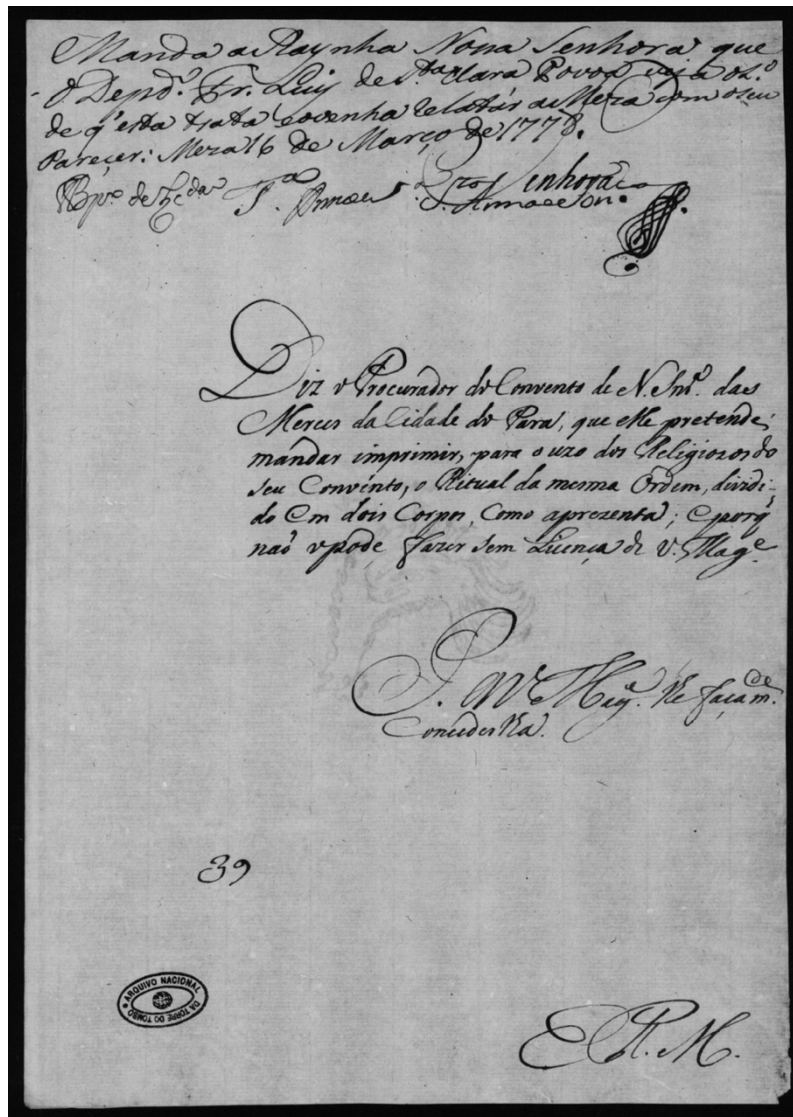 Manda a Raynha Nossa Senhora que
o Depd.º Fr. Luiz de S.ta Clara Povoa veja o L.º
de q' esta trata e o venha relatár a Meza com o seu
Pareçer: Meza 16 de Março de 1778.
Diz o Procurador do Convento de N. Snr.ª das
Merces da Cidade do Pará, que elle pretende
mandar imprimir, para o uzo dos Religiozos do
seu Convento, o Ritual da mesma Ordem, dividi-
do em dois Corpos, como aprezenta; e porq̃
naõ o póde fazer sem Licença de V. Mag.e
P. a V. Mag.e lhe faça m.ce
Concederlha.
39
ARQUIVO NACIONAL
DA TORRE DO TOMBO
E. R. M.